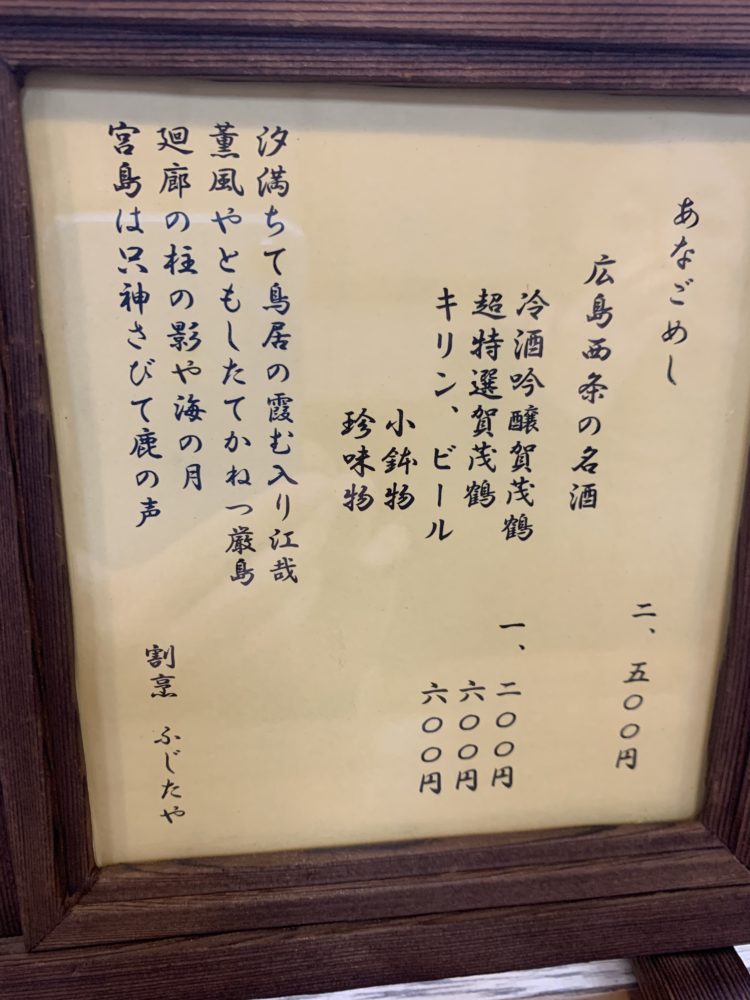 あなごめし
二、五〇〇円
広島西条の名酒
冷酒吟醸賀茂鶴
一、二〇〇円
超特選賀茂鶴
六〇〇円
キリン、ビール
六〇〇円
小鉢物
珍味物
汐満ちて鳥居の霞む入り江哉
薫風やともしたてかねつ厳島
廻廊の柱の影や海の月
宮島は只神さびて鹿の声
割烹 ふじたや